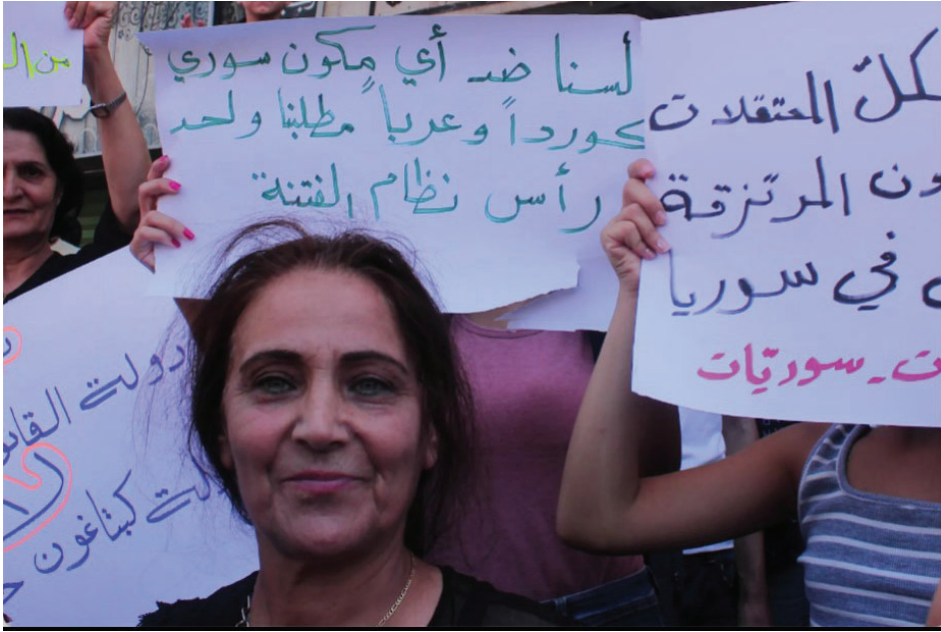 من الـ
لسنا ضد أي مكون سوري
كورداً وعرباً مطلبنا واحد
رأس نظام الفتنة
كلّ المعتقلات
المرتزقة
في سوريا
سوريّات
دولة
كبتاغون